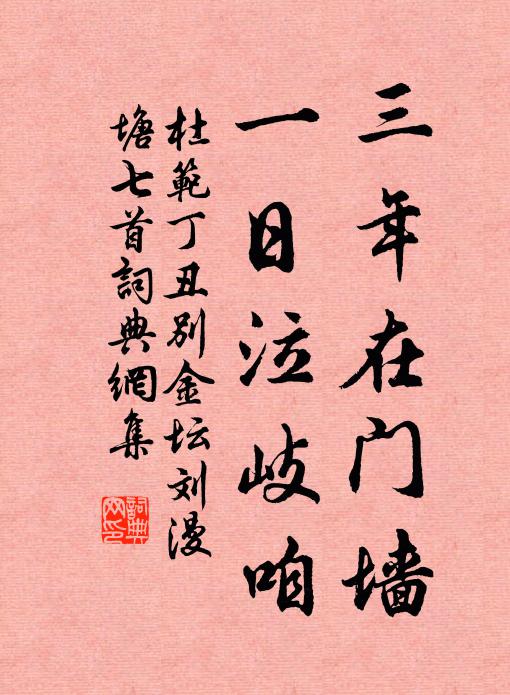 三年在门墙
一日泣岐咱
杜範丁丑别金坛刘漫
塘七首詞典網集
詞典網印